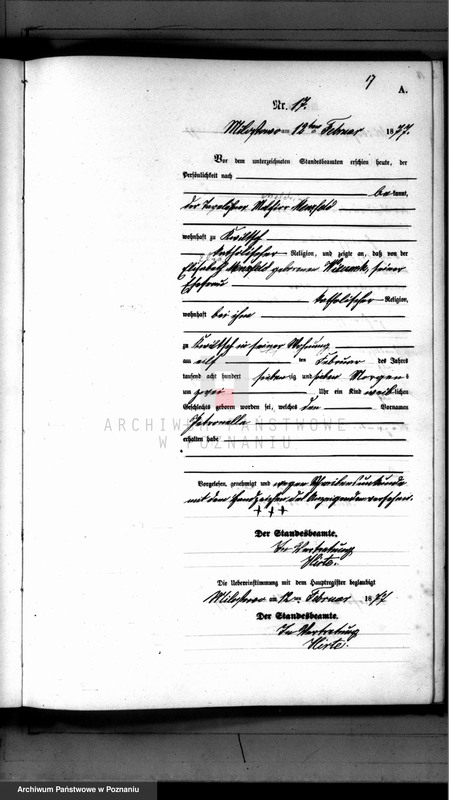 17
A.
Nr. 17.
Milostowo am 12ten Februar 1877.
Vor dem unterzeichneten Standesbeamten erschien heute, der
Persönlichkeit nach
bekannt,
der
wohnhaft zu Kwiltsch
katholischer Religion, und zeigte an, daß von der
Elisabeth geborenen seiner
Ehefrau
katholischer Religion,
wohnhaft bei ihm
zu Kwiltsch in seiner Wohnung
am elf ten Februar des Jahres
tausend acht hundert siebenzig und sieben Morgens
um zwei Uhr ein Kind weiblichen
Geschlechts geboren worden sei, welches den Vornamen
Petronella
erhalten habe
Vorgelesen, genehmigt und wegen Schreibensunkunde
mit dem Handzeichen des Anzeigenden versehen.
+++
Der Standesbeamte.
In Vertretung
Hirte.
Die Uebereinstimmung mit dem Hauptregister beglaubigt
Milostowo am 12ten Februar 1877
Der Standesbeamte.
In Vertretung
Hirte.
ARCHIWUM PAŃSTWOWE
W POZNANIU
Archiwum Państwowe w Poznaniu